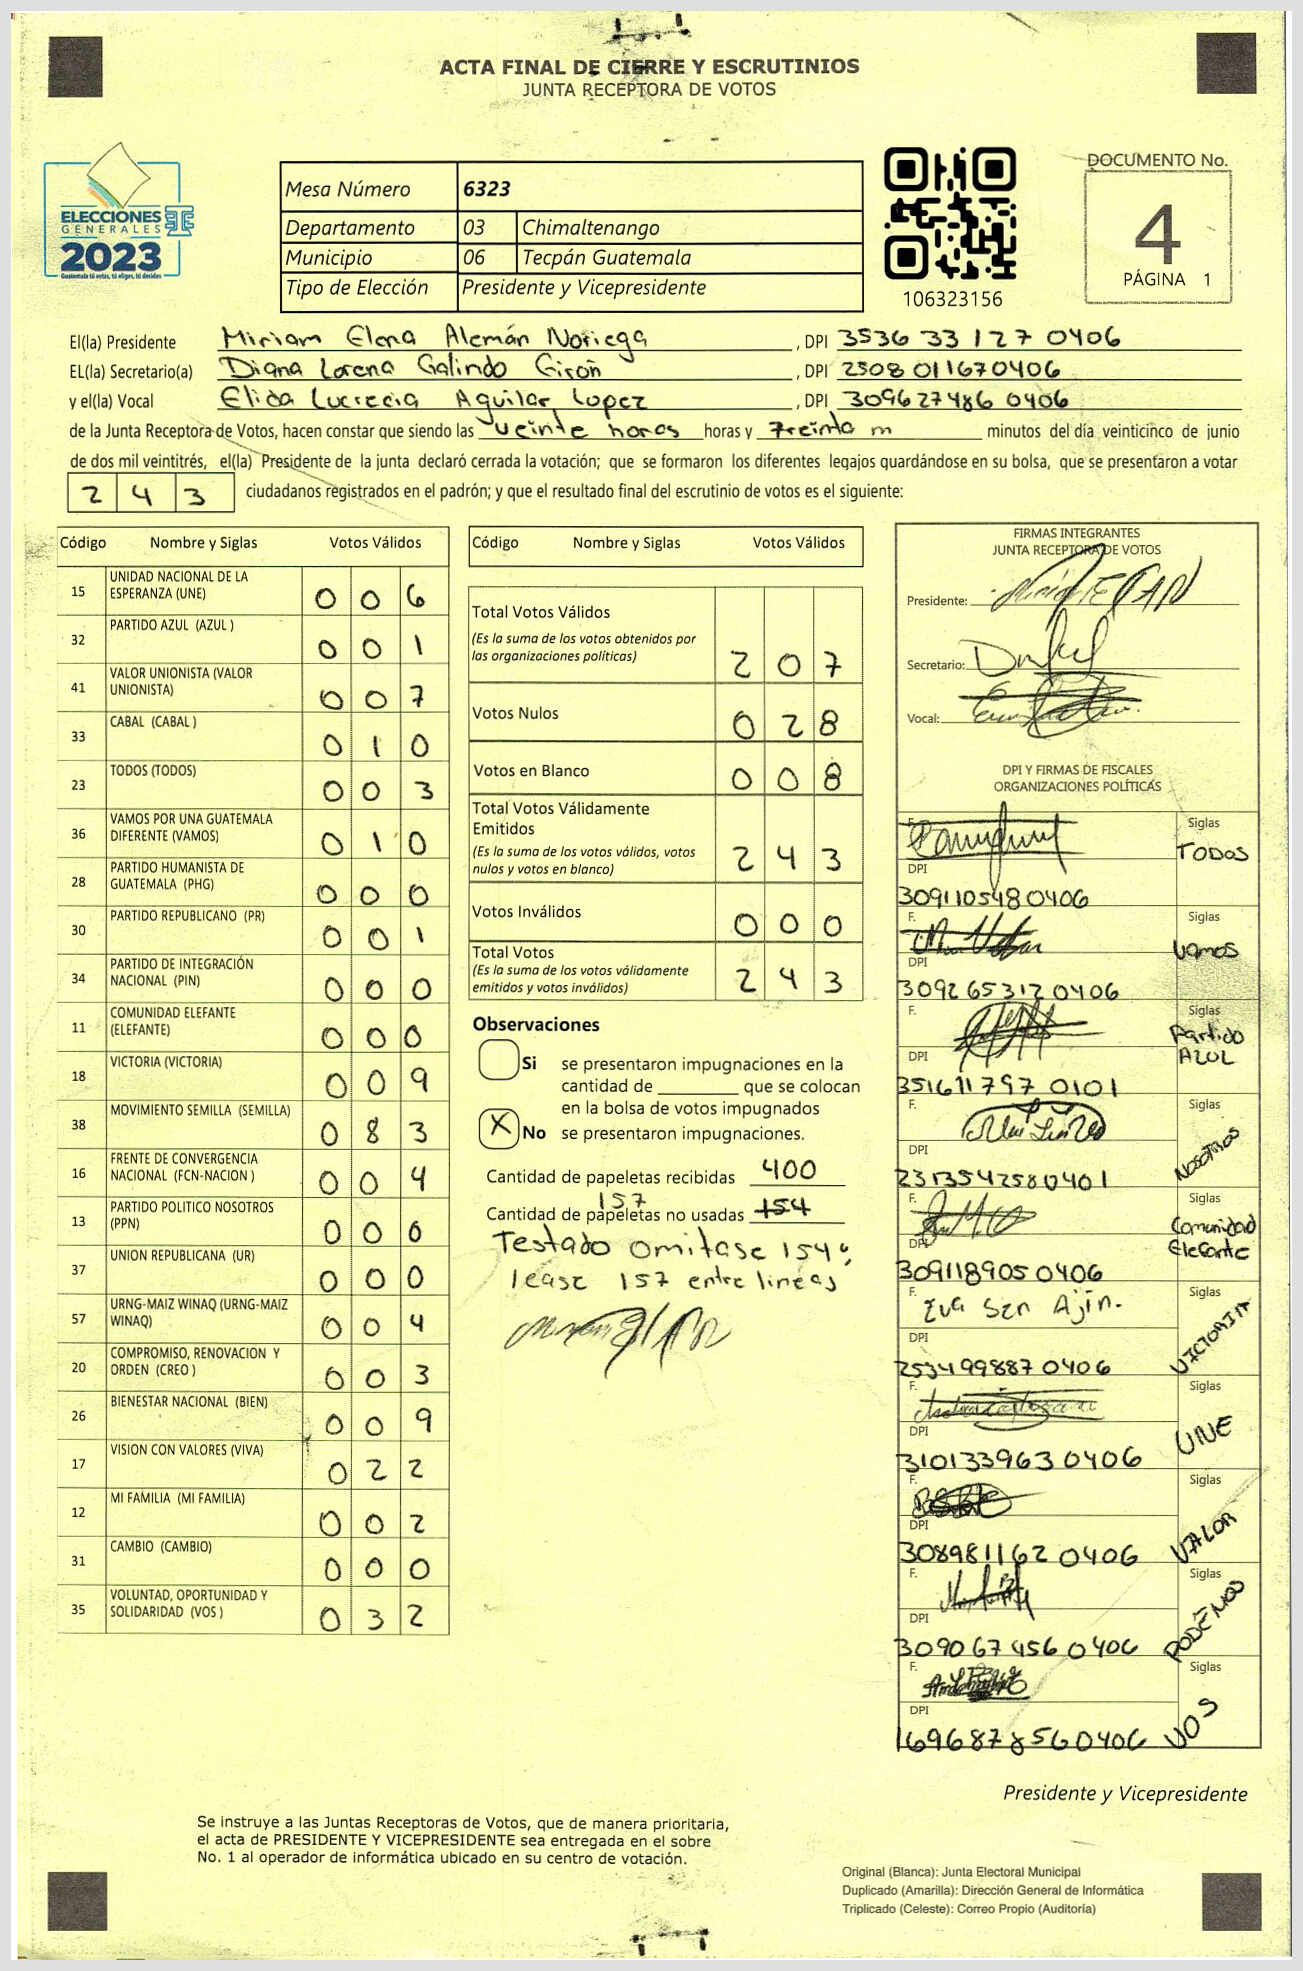 ACTA FINAL DE CIERRE Y ESCRUTINIOS
JUNTA RECEPTORA DE VOTOS
ELECCIONES
GENERALES
2023
Guatemala tú votas, tú eliges, tú decides
Mesa Número 6323
Departamento 03 Chimaltenango
Municipio 06 Tecpán Guatemala
Tipo de Elección Presidente y Vicepresidente
106323156
DOCUMENTO No.
4
PÁGINA 1
El(la) Presidente Miriam Elena Alemán Noriega , DPI 3536 33127 0406
EL(la) Secretario(a) Diana Lorena Galindo Girón , DPI 2508 011670406
y el(la) Vocal Elida Lucrecia Aguilar Lopez , DPI 309627486 0406
de la Junta Receptora de Votos, hacen constar que siendo las veinte horas horas y treinta m minutos del día veinticinco de junio
de dos mil veintitrés, el(la) Presidente de la junta declaró cerrada la votación; que se formaron los diferentes legajos quardándose en su bolsa, que se presentaron a votar
243 ciudadanos registrados en el padrón; y que el resultado final del escrutinio de votos es el siguiente:
Código Nombre y Siglas Votos Válidos
15 UNIDAD NACIONAL DE LA ESPERANZA (UNE) 006
32 PARTIDO AZUL (AZUL ) 001
41 VALOR UNIONISTA (VALOR UNIONISTA) 007
33 CABAL (CABAL ) 010
23 TODOS (TODOS) 003
36 VAMOS POR UNA GUATEMALA DIFERENTE (VAMOS) 010
28 PARTIDO HUMANISTA DE GUATEMALA (PHG) 000
30 PARTIDO REPUBLICANO (PR) 001
34 PARTIDO DE INTEGRACIÓN NACIONAL (PIN) 000
11 COMUNIDAD ELEFANTE (ELEFANTE) 000
18 VICTORIA (VICTORIA) 009
38 MOVIMIENTO SEMILLA (SEMILLA) 083
16 FRENTE DE CONVERGENCIA NACIONAL (FCN-NACION ) 004
13 PARTIDO POLITICO NOSOTROS (PPN) 000
37 UNION REPUBLICANA (UR) 000
57 URNG-MAIZ WINAQ (URNG-MAIZ WINAQ) 004
20 COMPROMISO, RENOVACION Y ORDEN (CREO ) 003
26 BIENESTAR NACIONAL (BIEN) 009
17 VISION CON VALORES (VIVA) 022
12 MI FAMILIA (MI FAMILIA) 002
31 CAMBIO (CAMBIO) 000
35 VOLUNTAD, OPORTUNIDAD Y SOLIDARIDAD (VOS ) 032
Código Nombre y Siglas Votos Válidos
Total Votos Válidos
(Es la suma de los votos obtenidos por
las organizaciones políticas) 207
Votos Nulos 028
Votos en Blanco 008
Total Votos Válidamente
Emitidos
(Es la suma de los votos válidos, votos
nulos y votos en blanco) 243
Votos Inválidos 000
Total Votos
(Es la suma de los votos válidamente
emitidos y votos inválidos) 243
Observaciones
Si se presentaron impugnaciones en la
cantidad de ________ que se colocan
en la bolsa de votos impugnados
X No se presentaron impugnaciones.
Cantidad de papeletas recibidas 400
157
Cantidad de papeletas no usadas 154
Testado omitase 154;
lease 157 entre lineas
FIRMAS INTEGRANTES
JUNTA RECEPTORA DE VOTOS
Presidente:
Secretario:
Vocal:
DPI Y FIRMAS DE FISCALES
ORGANIZACIONES POLÍTICAS
F. Siglas
TODOS
DPI
309110548 0406
F. Siglas
Vamos
DPI
309265312 0406
F. Siglas
Partido
AZUL
DPI
351611797 0101
F. Siglas
NOSOTROS
DPI
2313542580401
F. Siglas
Comunidad
Elefante
DPI
309118905 0406
F. Eva Sen Ajin. Siglas
VICTORIA
DPI
253499887 0406
F. Siglas
UNE
DPI
310133963 0406
F. Siglas
VALOR
DPI
308981162 0406
F. Siglas
PODEMOS
DPI
309067456 0406
F. Siglas
VOS
DPI
1696878560406
Presidente y Vicepresidente
Se instruye a las Juntas Receptoras de Votos, que de manera prioritaria,
el acta de PRESIDENTE Y VICEPRESIDENTE sea entregada en el sobre
No. 1 al operador de informática ubicado en su centro de votación.
Original (Blanca): Junta Electoral Municipal
Duplicado (Amarilla): Dirección General de Informática
Triplicado (Celeste): Correo Propio (Auditoría)